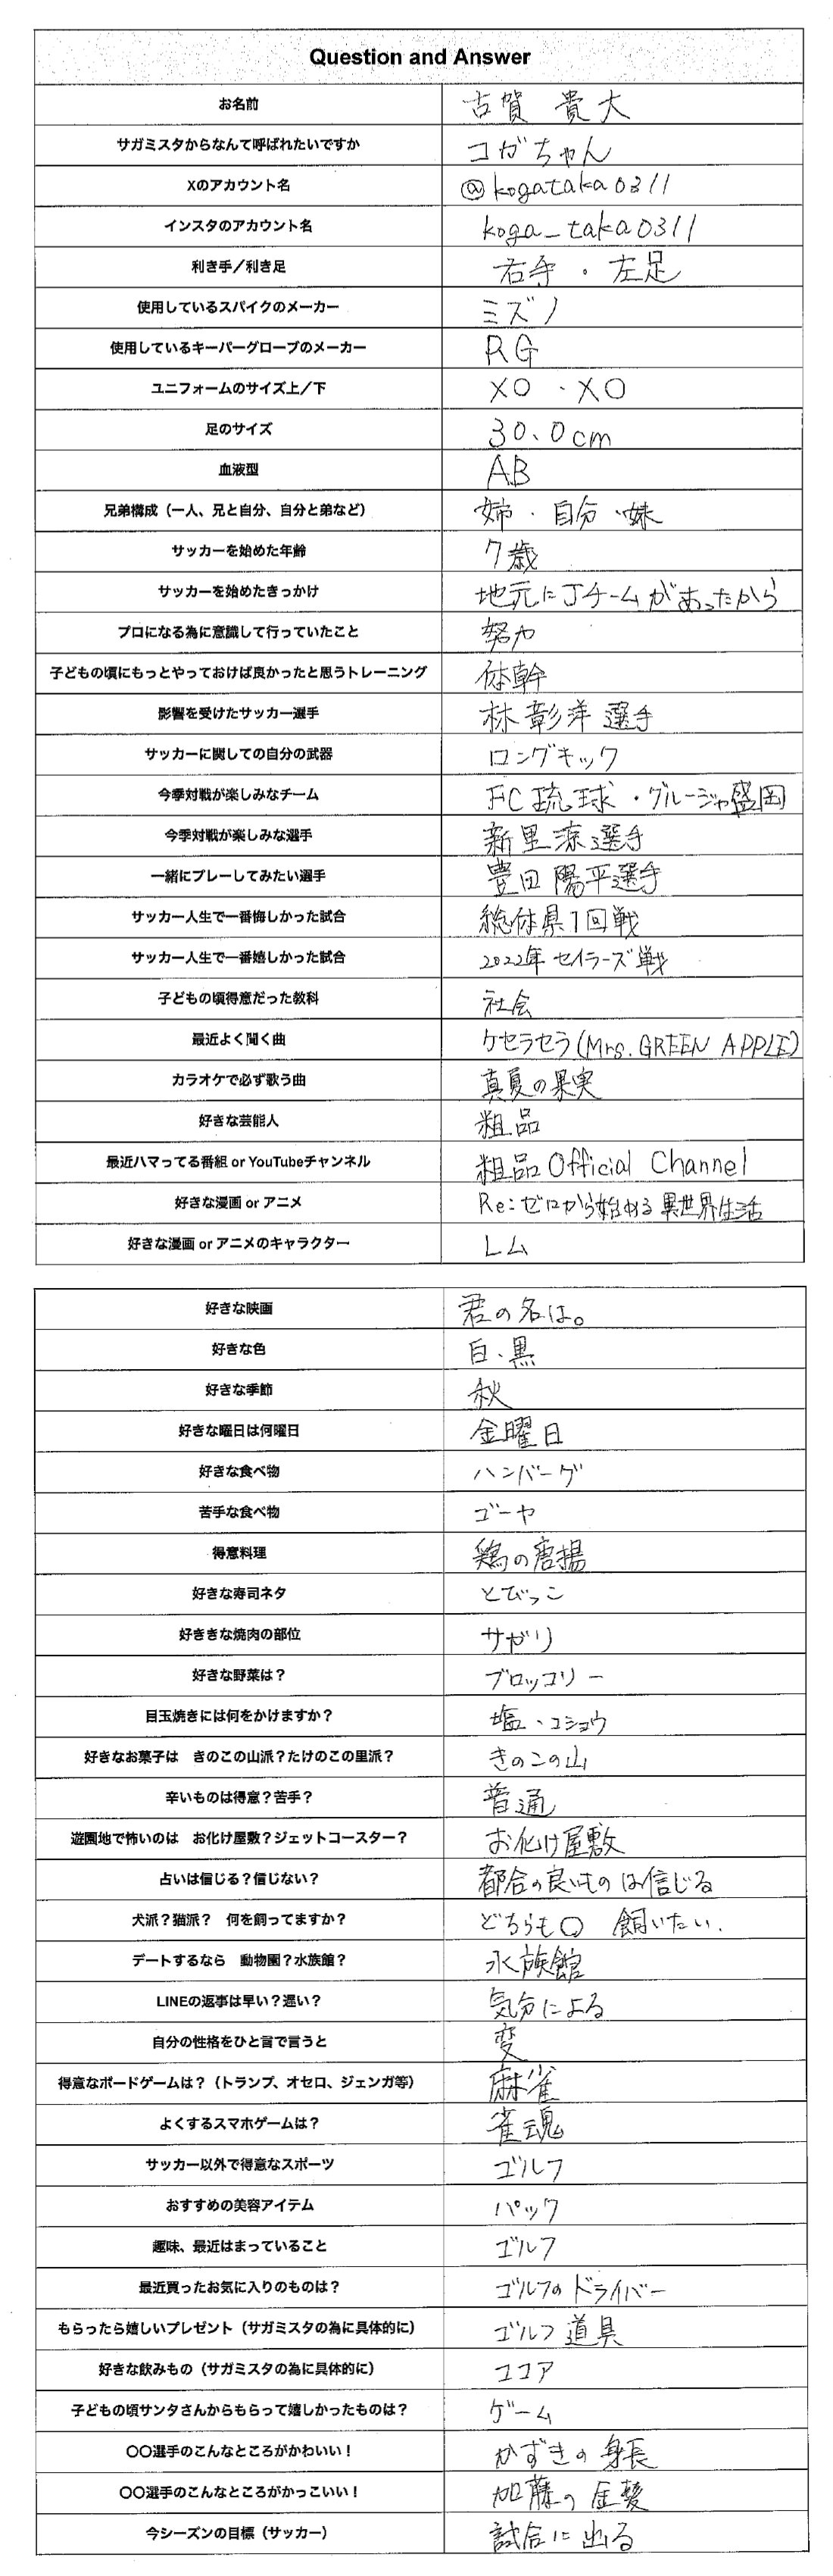 Question and Answer
お名前 古賀 貴大
サガミスタからなんて呼ばれたいですか コガちゃん
Xのアカウント名 @kogataka0311
インスタのアカウント名 koga_taka0311
利き手/利き足 右手・左足
使用しているスパイクのメーカー ミズノ
使用しているキーパーグローブのメーカー RG
ユニフォームのサイズ上/下 XO・XO
足のサイズ 30.0cm
血液型 AB
兄弟構成(一人、兄と自分、自分と弟など) 姉・自分・妹
サッカーを始めた年齢 7歳
サッカーを始めたきっかけ 地元にJチームがあったから
プロになる為に意識して行っていたこと 努力
子どもの頃にもっとやっておけば良かったと思うトレーニング 体幹
影響を受けたサッカー選手 林彰洋選手
サッカーに関しての自分の武器 ロングキック
今季対戦が楽しみなチーム FC琉球・グルージャ盛岡
今季対戦が楽しみな選手 新里涼選手
一緒にプレーしてみたい選手 豊田陽平選手
サッカー人生で一番悔しかった試合 総体県1回戦
サッカー人生で一番嬉しかった試合 2022年セイラーズ戦
子どもの頃得意だった教科 社会
最近よく聞く曲 ケセラセラ(Mrs. GREEN APPLE)
カラオケで必ず歌う曲 真夏の果実
好きな芸能人 粗品
最近ハマってる番組 or YouTubeチャンネル 粗品 Official Channel
好きな漫画 or アニメ Re:ゼロから始める異世界生活
好きな漫画 or アニメのキャラクター レム
好きな映画 君の名は。
好きな色 白・黒
好きな季節 秋
好きな曜日は何曜日 金曜日
好きな食べ物 ハンバーグ
苦手な食べ物 ゴーヤ
得意料理 鶏の唐揚
好きな寿司ネタ とびっこ
好ききな焼肉の部位 サガリ
好きな野菜は? ブロッコリー
目玉焼きには何をかけますか? 塩・コショウ
好きなお菓子は きのこの山派?たけのこの里派? きのこの山
辛いものは得意?苦手? 普通
遊園地で怖いのは お化け屋敷?ジェットコースター? お化け屋敷
占いは信じる?信じない? 都合の良いものは信じる
犬派?猫派? 何を飼ってますか? どちらも〇 飼いたい.
デートするなら 動物園?水族館? 水族館
LINEの返事は早い?遅い? 気分による
自分の性格をひと言で言うと 変
得意なボードゲームは?(トランプ、オセロ、ジェンガ等) 麻雀
よくするスマホゲームは? 雀魂
サッカー以外で得意なスポーツ ゴルフ
おすすめの美容アイテム パック
趣味、最近はまっていること ゴルフ
最近買ったお気に入りのものは? ゴルフのドライバー
もらったら嬉しいプレゼント(サガミスタの為に具体的に) ゴルフ道具
好きな飲みもの(サガミスタの為に具体的に) ココア
子どもの頃サンタさんからもらって嬉しかったものは? ゲーム
〇〇選手のこんなところがかわいい! かずきの身長
〇〇選手のこんなところがかっこいい! 加藤の金髪
今シーズンの目標(サッカー) 試合に出る